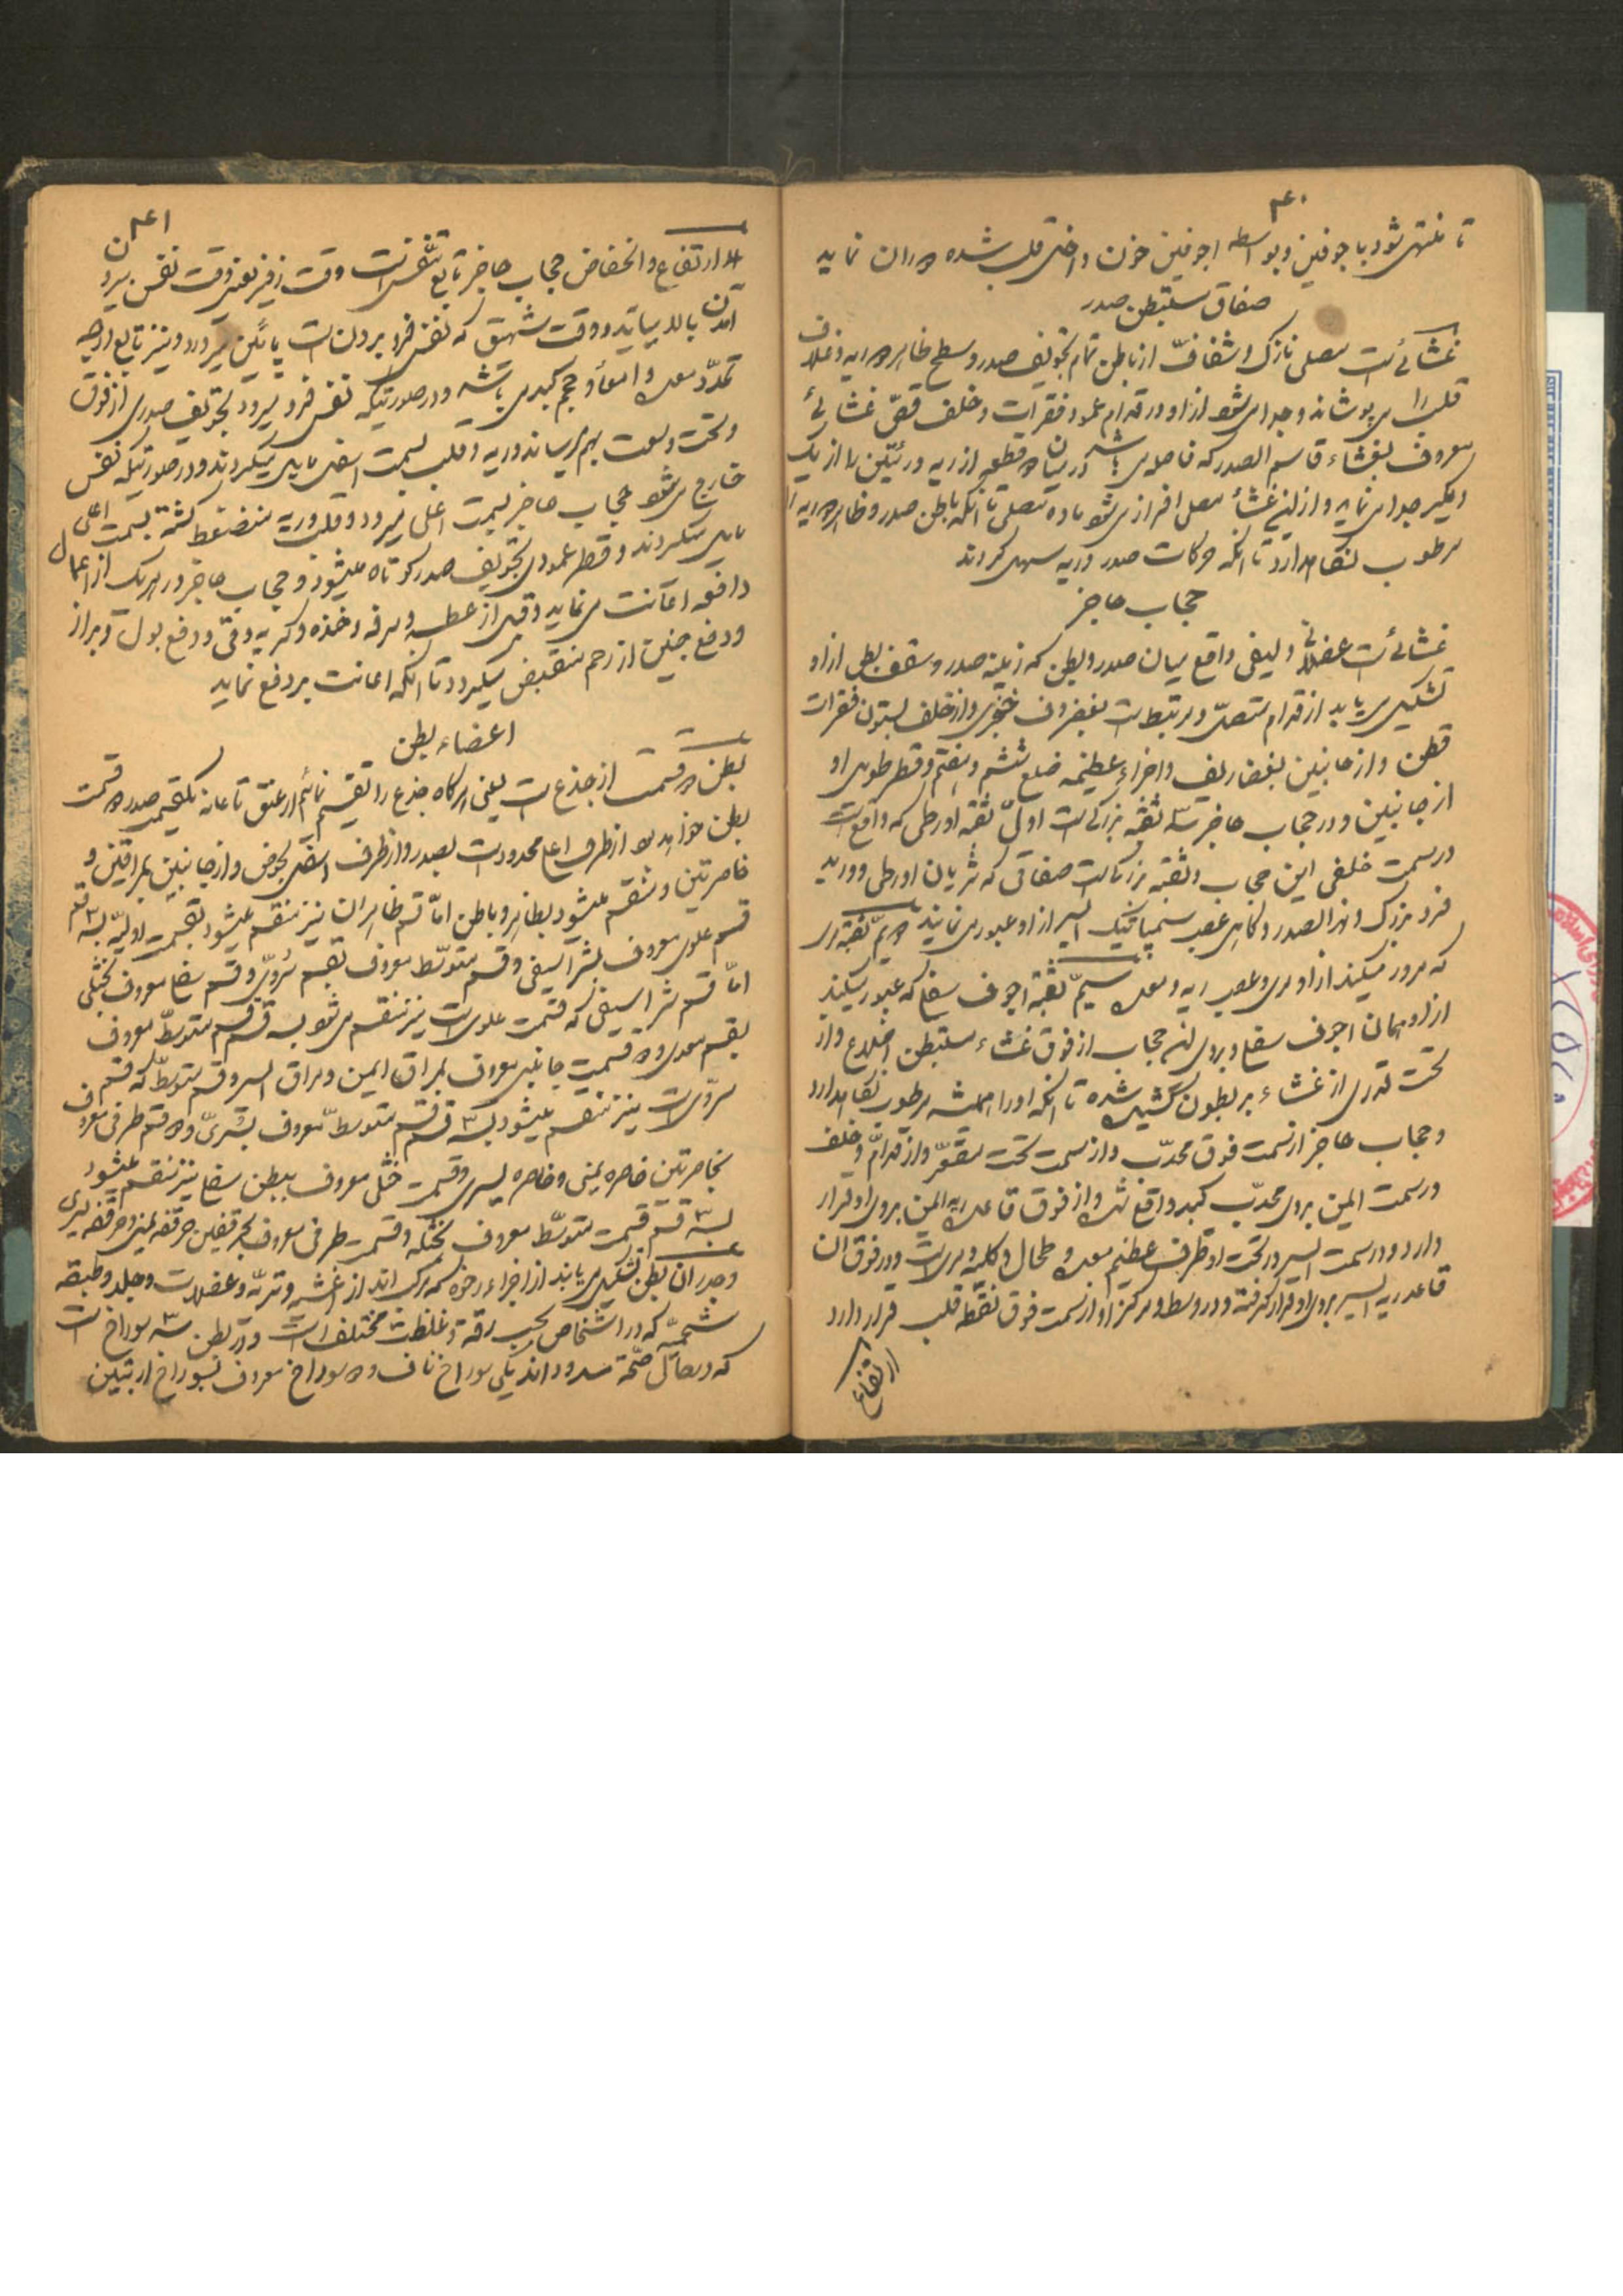 ۴۰
تا منتهی شود باجوفین و بواسطه اجوفین خون داخل قلب شده دوران نماید
صفاق مستبطن صدر
غشائیست مصلی نازک و شفاف از باطن تمام تجویف صدر و سطح ظاهر دو ریه و غلاف
قلب را می پوشاند و جدا می شود از او در قدام عمود فقرات و خلف قص غشائی
معروف بغشاء قاسم الصدر که فاصل می باشد در میان دو قطعه از ریه و رئتین را از یک
دیگر جدا می نماید و از این غشاء مصلی افراز می شود ماده مصلی تا آنکه باطن صدر و ظاهر دو ریه را
مرطوب نگاهدارد تا آنکه حرکات صدر و ریه سهل کردند
حجاب حاجز
غشائیست عضلانی و لیفی واقع میان صدر و بطن که زمین صدر و سقف بطن از او
تشکیل می یابد از قدام متصل و مرتبط است بغضروف خنجری و از خلف بستون فقرات
قطن و از جانبین بغضاریف و اجزاء عظیمه ضلع ششم و هفتم و قطر طولی او
از جانبین و در حجاب حاجز سه ثقبه بزرگ است اول ثقبه اورطی که واقع است
در سمت خلفی این حجاب و ثقبه بزرگ است صفاقی که شریان اورطی و ورید
فرد بزرک و نهر الصدر و کاهی عصب سمپاتیک ایسر از او عبور می نمایند دویم ثقبه مری
که مرور میکند از او مری و عصب ریه و معده سیم ثقبه اجوف سفلی که عبور میکند
از او همان اجوف سفلی و بروی این حجاب از فوق غشاء مستبطن اضلاع و از
تحت قدری از غشاء بریطون کشیده شده تا آنکه او را همیشه مرطوب نگاهدارد
و حجاب حاجز از سمت فوق محدب و از سمت تحت مقعر و از قدام و خلف
در سمت ایمن بروی محدب کبد واقع شده و از فوق قاعده ریه ایمن بروی او قرار
دارد و در سمت ایسر در تحت او طرف عظیم معده و طحال و کلیه یسری است و در فوق آن
قاعده ریه ایسر بروی او قرار گرفته و در وسط و مرکز او از سمت فوق نقطه قلب قرار دارد
ارتفاع
۴۱
اما ارتفاع و انخفاض حجاب حاجز تابع تنفس است وقت زفیر یعنی وقت نفس بیرون
آمدن بالا میاید و وقت شهیق که نفس فرو بردن است پائین میرود و نیز تابع درجه
تمدد معده و امعاء و حجم کبد می باشد و در صورتیکه نفس فرو میرود تجویف صدری از فوق
و تحت وسعت بهم میرساند و ریه و قلب بسمت اسفل مایل میکردند و در صورتیکه نفس
خارج می شود حجاب حاجز بسمت اعلی میرود و قلب و ریه منضغط کشته بسمت اعلی
مایل میکردند و قطر عمودی تجویف صدر کوتاه میشود و حجاب حاجز در هر یک از اعمال
دافعه اعانت می نماید وقتی از عطسه و سرفه و خنده و کریه و قی و دفع بول و براز
و دفع جنین از رحم منقبض میکردد تا آنکه اعانت بر دفع نماید
اعضاء بطن
بطن دو قسمت از جذع است یعنی هر کاه جذع را تقسیم نمائیم از عنق تا عانه یکقسمت صدر و دو قسمت
بطن خواهد بود از طرف اعلی محدود است بصدر و از طرف اسفل بحوض و از جانبین بمراقین و
خاصرتین و منقسم میشود بظاهر و باطن اما قسم ظاهر آن نیز منقسم میشود بقسمت اولیه بسه قسم
قسم علوی معروف بشراسیفی و قسم متوسط معروف بقسم سروی و قسم سفلی معروف بخثلی
اما قسم شراسیفی که قسمت علوی است نیز منقسم می شود بسه قسم قسم متوسط معروف
بقسم معدی و دو قسمت جانبی معروف بمراق ایمن و مراق ایسر و قسم متوسط که قسم
سروی است نیز منقسم میشود بسه قسم قسم متوسط معروف بسری و دو قسم طرفی معروف
بخاصرتین خاصره یمنی و خاصره یسری و قسمت خثلی معروف ببطن سفلی نیز منقسم میشود
بسه قسم قسمت متوسط معروف بخثله و قسمت طرفی معروف بحرقفین حرقفه یمنی و حرقفه یسری
و جدران بطن تشکیل می یابند از اجزاء رخوه که مرکب اند از اغشیه وتریه و عضلات و جلد و طبقه
شحمیه که در اشخاص بحسب رقت و غلظت مختلف است و در بطن سه سوراخ است
که در حال صحت مسدود اند یکی سوراخ ناف و دو سوراخ معروف بسوراخ اربتین